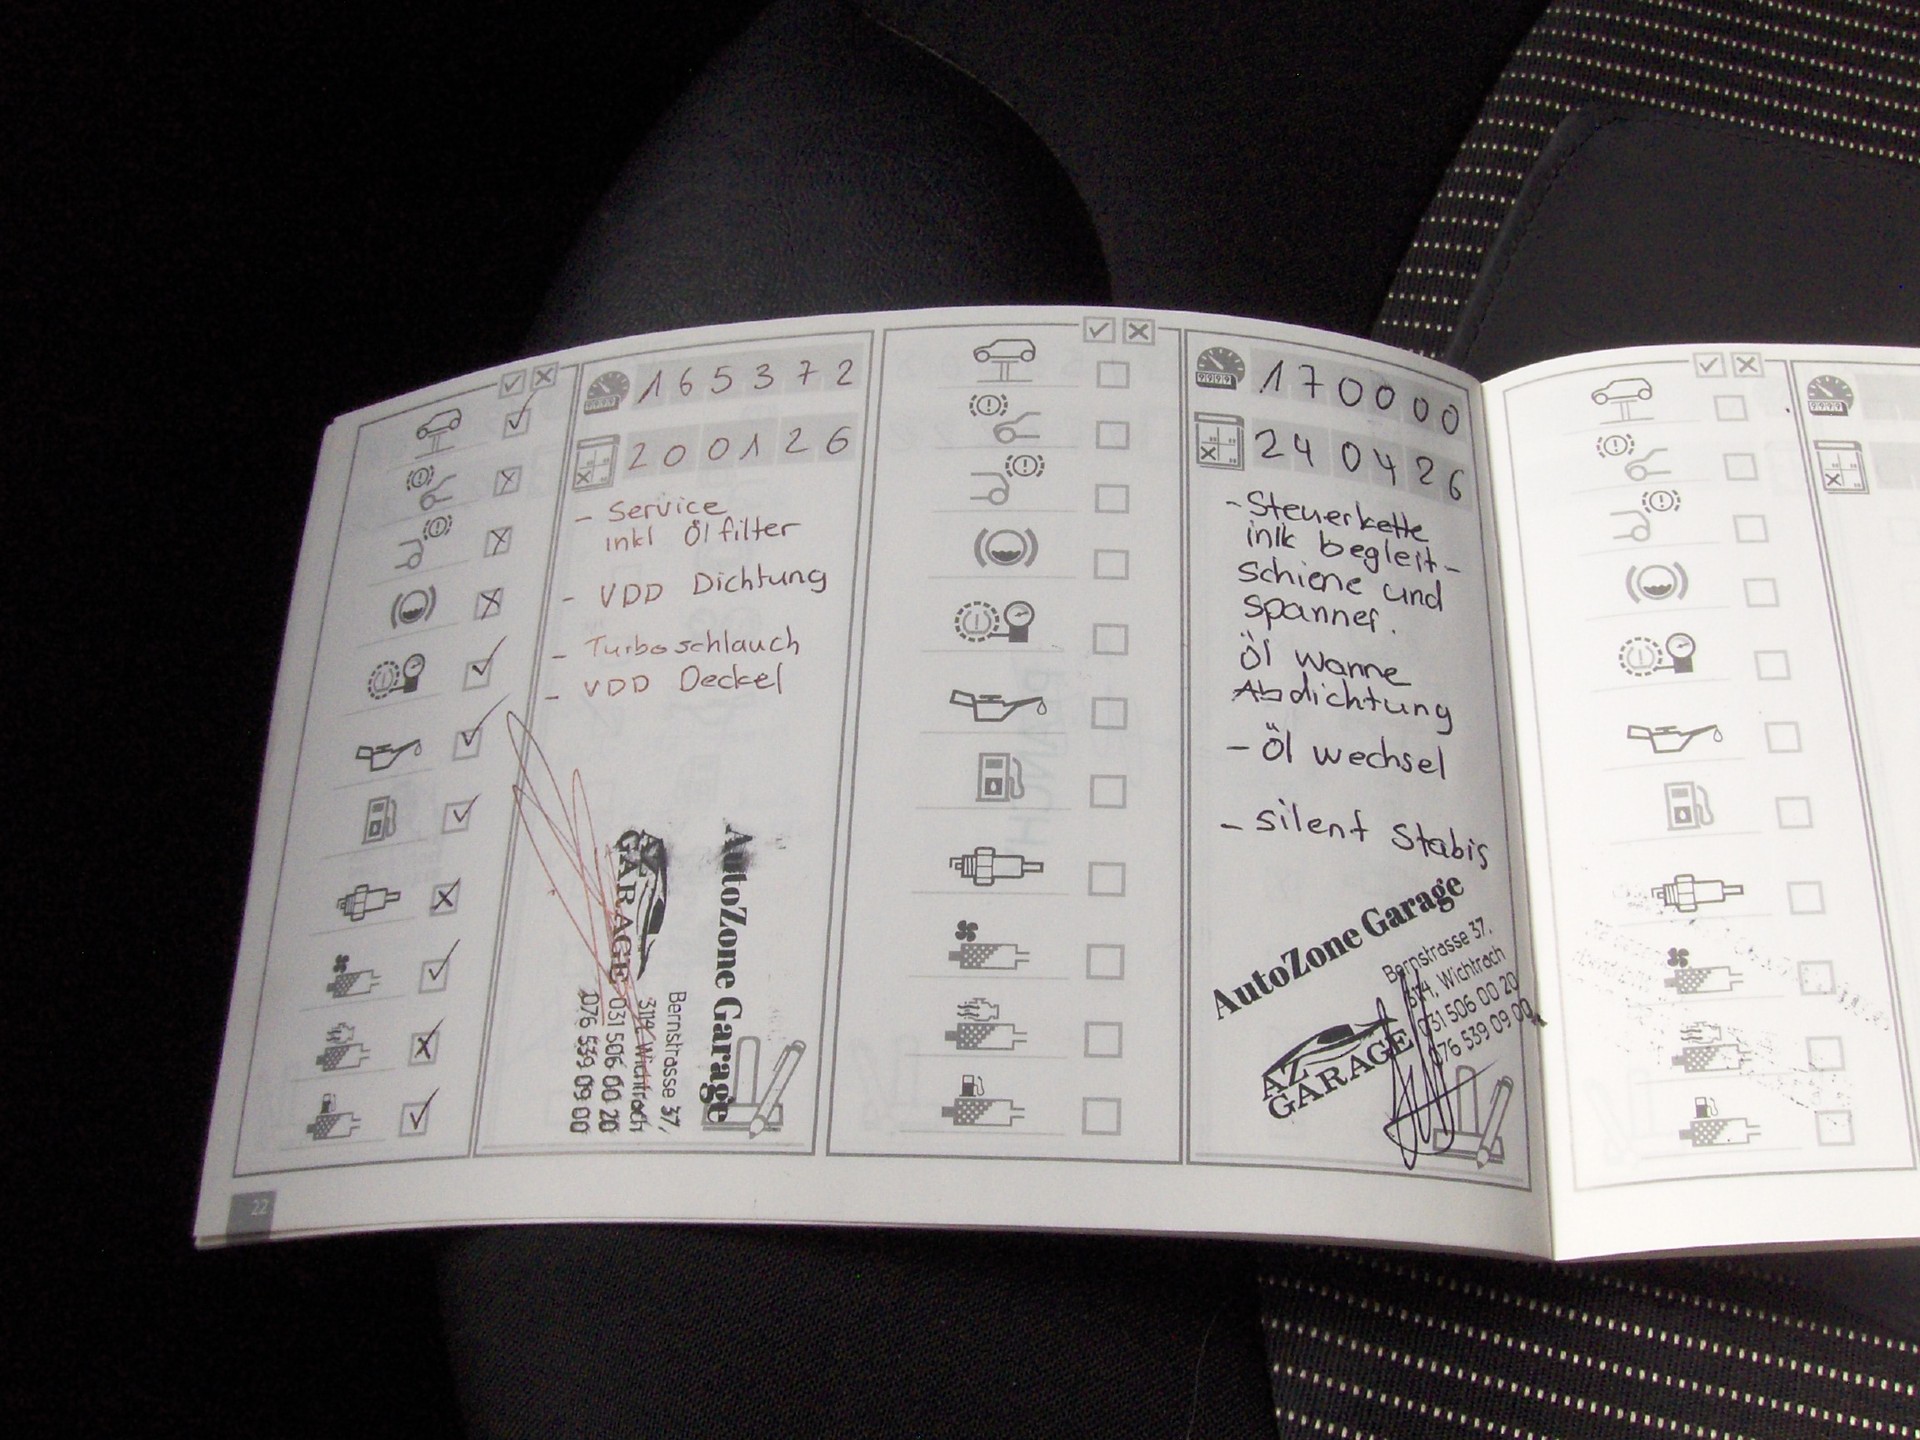 165372
200126
- Service
inkl Ölfilter
- VDD Dichtung
- Turboschlauch
- VDD Deckel
AutoZone Garage
Bernstrasse 37,
3114, Wichtrach
031 506 00 20
076 539 09 00
AZ
GARAGE
22
170000
240426
- Steuerkette
inlk begleit-
schiene und
spanner.
Öl wanne
Abdichtung
- Öl wechsel
- silent Stabis
AutoZone Garage
Bernstrasse 37,
3114, Wichtrach
031 506 00 20
076 539 09 00
AZ
GARAGE